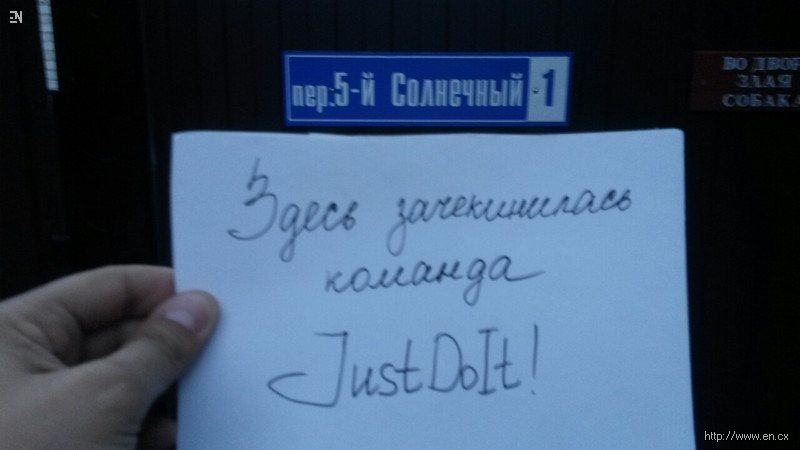 EN
пер. 5-й Солнечный 1
ВО ДВОР
ЗЛАЯ
СОБАКА
Здесь зачекинилась
команда
JustDoIt!
http://www.en.cx